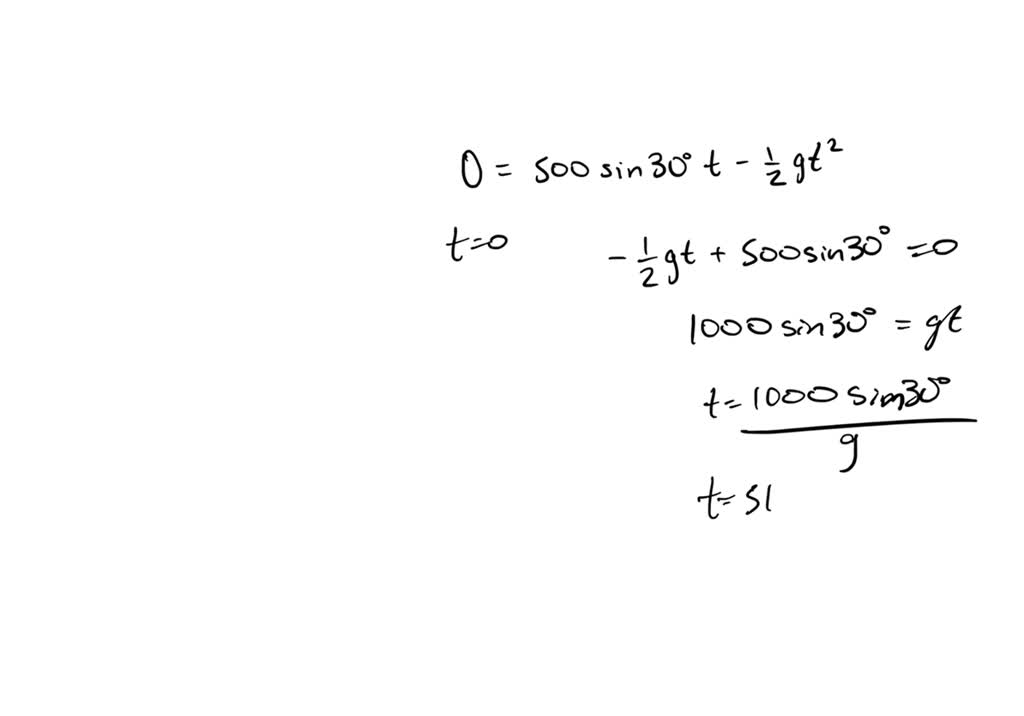 0 = 500 sin30° t - 1/2 gt²
t=0
- 1/2 gt + 500sin30° =0
1000 sin30° = gt
t= 1000 sin30° / g
t= 51